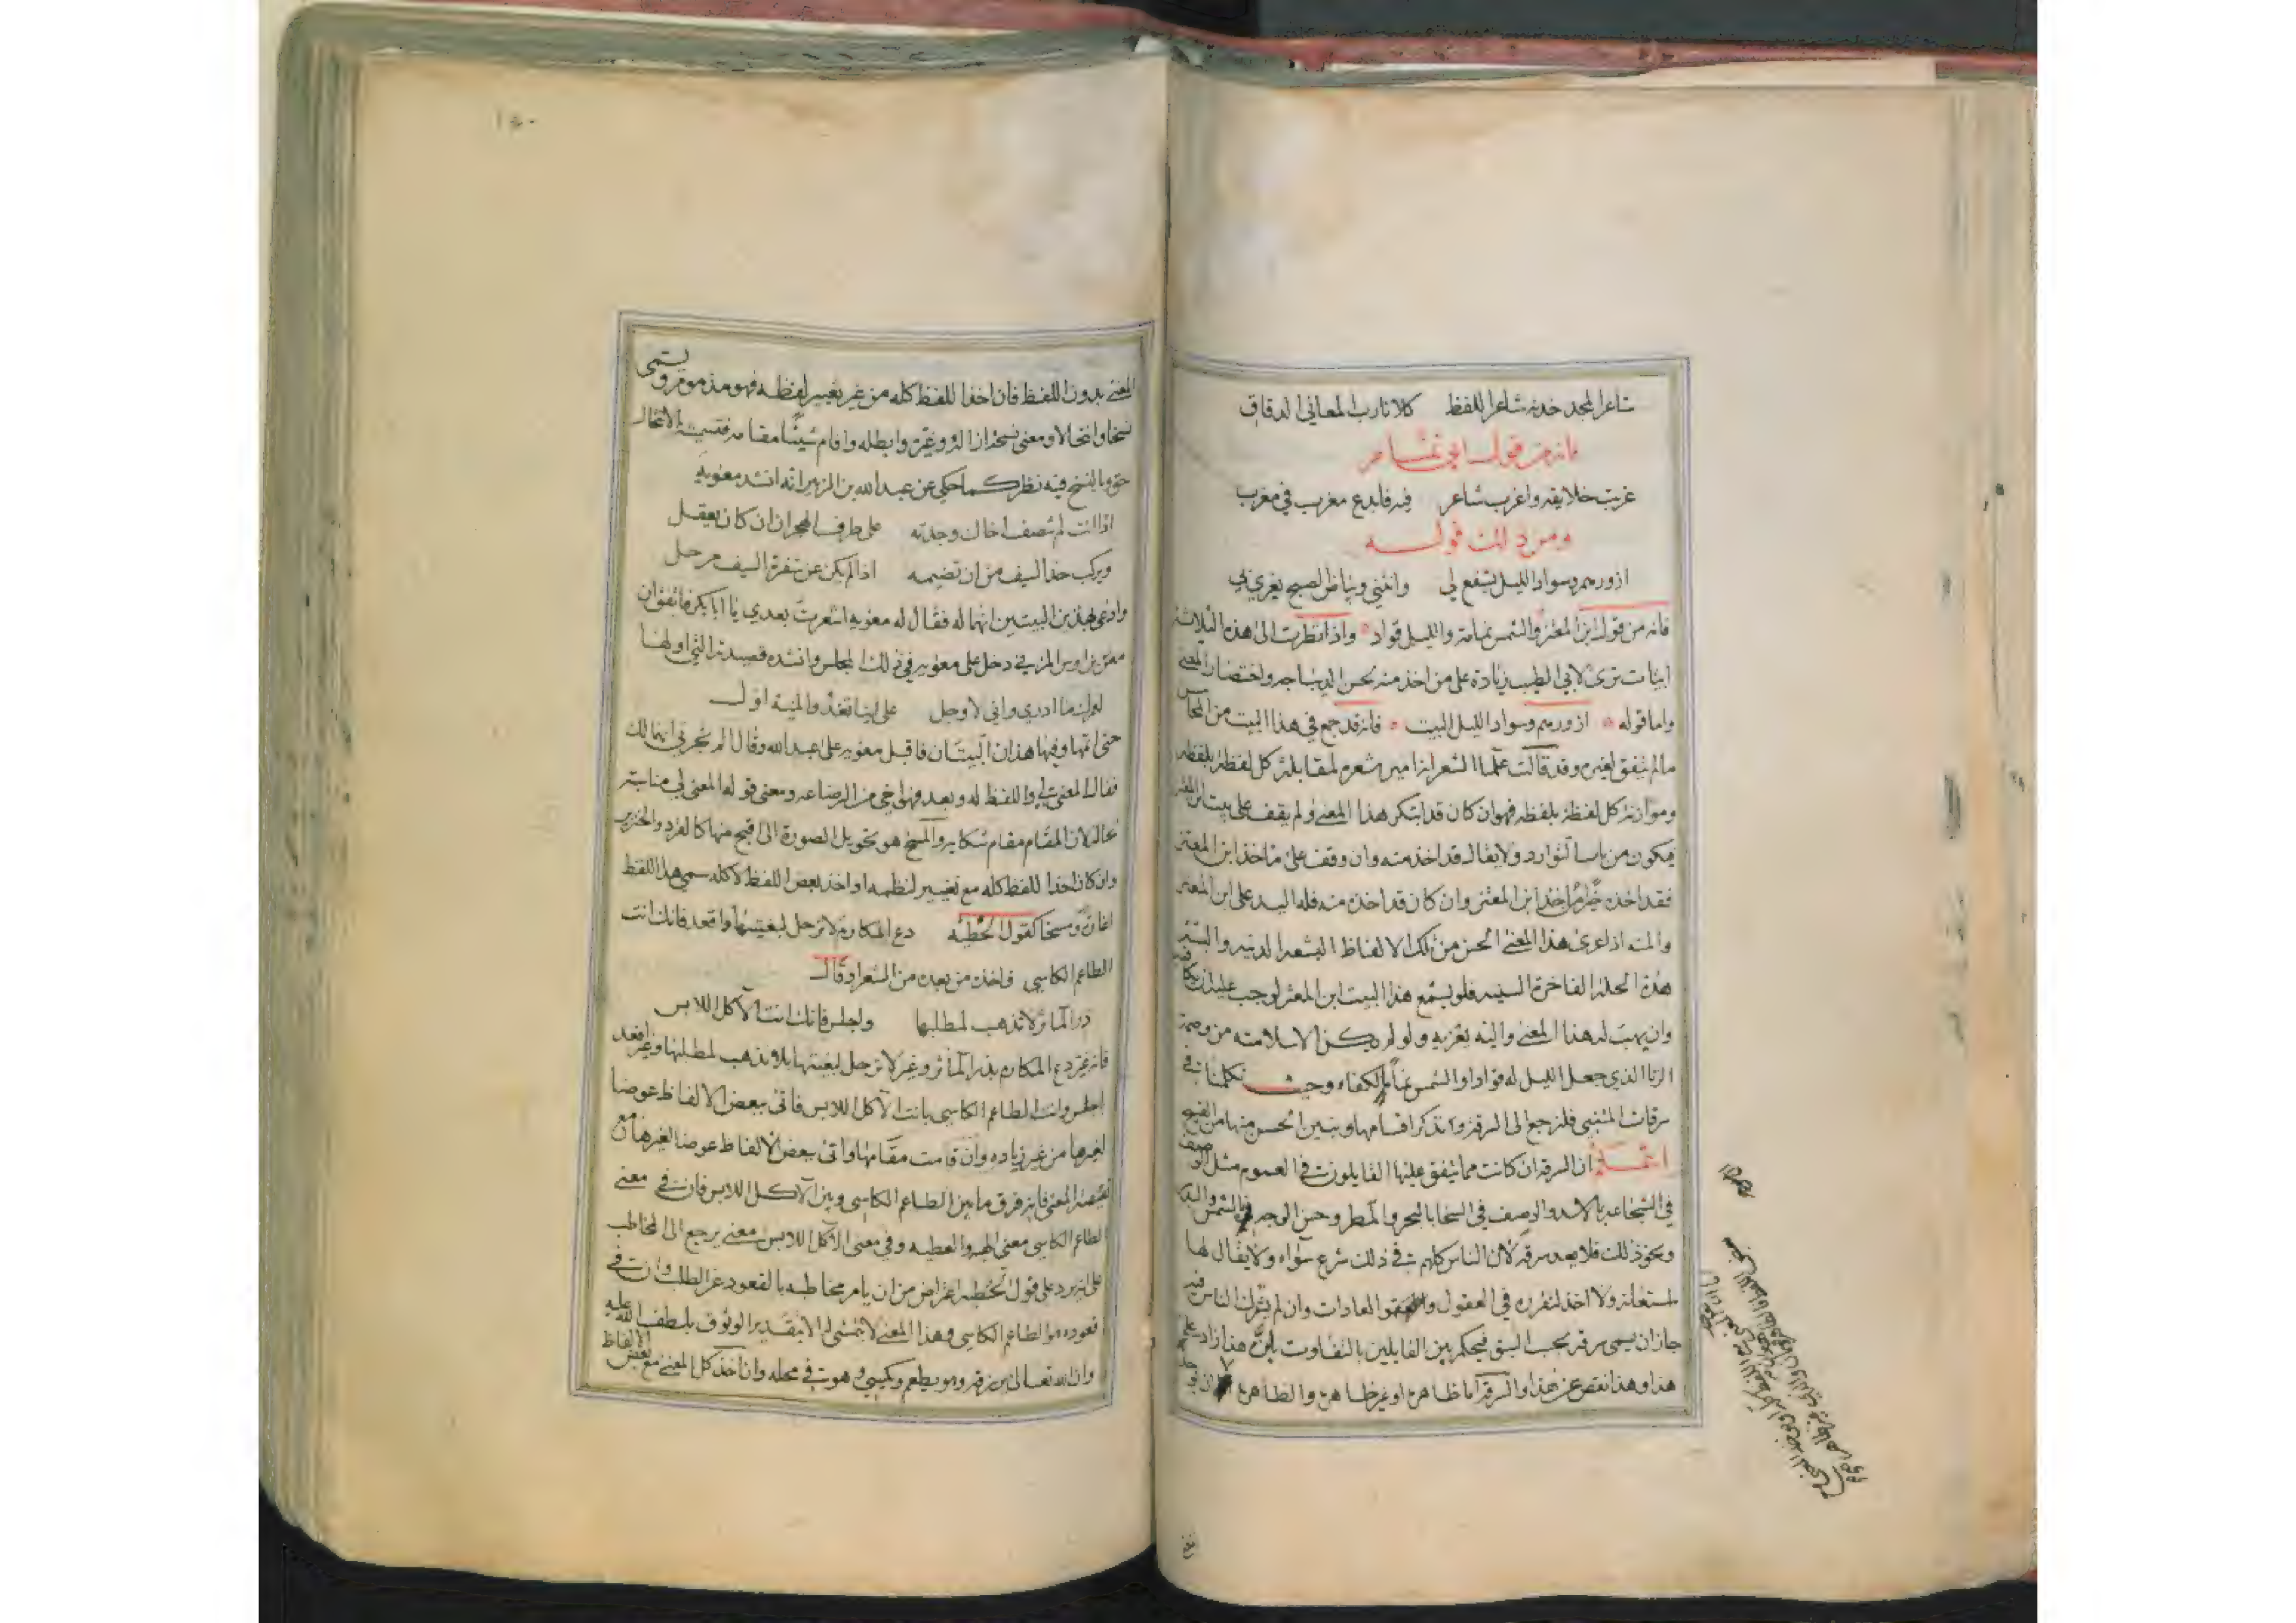 شاعر المجد خدنه شاعر اللفظ كلانا رب المعاني الدقاق
فانه من قول ابي تمام
غربت خلايقه واغرب شاعر فيه فابدع مغرب في مغرب
ومن ذلك قوله
ازورهم وسواد الليل يشفع لي وانثني وبياض الصبح يغري بي
فانه من قول ابن المعتز والشمس نمامة والليل قواد واذا نظرت الى هذه الثلاثة
ابيات ترى لابي الطيب زيادة على من اخذ منه بحسن الديباجه واختصار المعنى
واما قوله ازورهم وسواد الليل البيت فانه قد جمع في هذا البيت من المحاسن
مالم يتفق لغيره وقد قالت علما الشعر انه امير شعره لمقابلة كل لفظة بلفظه
وموازنة كل لفظة بلفظه فهو ان كان قد ابتكر هذا المعنى ولم يقف على بيت ابن المعتز
فيكون من باب التوارد ولا يقال قد اخذ منه وان وقف على ما اخذ ابن المعتز
فقد اخذه اخذ ابن المعتز وان كان قد اخذه منه فله اليد على ابن المعتز
والمنه اذا عرى هذا المعنى الحسن من تلك الالفاظ البشعه الدنيه والبسه
هذه الحلة الفاخرة السنيه فلو يسمع هذا البيت ابن المعتز لوجب عليه
وان يهب له هذا المعنى واليه يعزيه ولو لم يكن الا سلامته من وصمة
الزنا الذي جعل الليل له قوادا والشمس لكفاه وحيث تكلمنا في
سرقات المتنبي فلنرجع الى السرقة ونذكر اقسامها ونبين الحسن منها من القبيح
ان السرقه ان كانت مما يتفق عليها القايلون في العموم مثل الوصف
في الشجاعه بالاسد والوصف في السخا بالبحر والمطر وحسن الوجه بالشمس والبدر
ونحو ذلك فلا يعد سرقه لان الناس كلهم في ذلك شرع سواء ولا يقال لها
استعانة ولا اخذ لتقرره في العقول والعادات وان لم يشترك الناس فيه
جاز ان يسمى سرقه بحسب السبق فيحكم بين القايلين بالتفاوت بان هذا زاد على
هذا وهذا نقص عن هذا والسرقة اما ظاهرة او غير ظاهرة والظاهرة
١٥٠
المعنى بدون اللفظ فان اخذ اللفظ كله من غير تغيير لفظه فهو مذموم ويسمى
نسخا وانتحالا ومعنى نسخه ازاله وغيره وابطله واقام شيئا مقامه فتسميته بالانتحال
حق وبالنسخ فيه نظر كما حكي عن عبد الله بن الزبير انه انشد معويه
اذا انت لم تنصف اخاك وجدته على طرف الهجران ان كان يعقل
ويركب حد السيف من ان تضيمه اذا لم يكن عن شفرة السيف مرحل
وادعى بهذين البيتين انهما له فقال له معويه اشعرت بعدي يا ابا بكر فاتفق ان
معن بن اوس المزني دخل على معويه في ذلك المجلس وانشده قصيدته التي اولها
لعمرك ما ادري واني لاوجل على اينا تغدو المنية اول
حتى اتمها وفيها هذان البيتان فاقبل معويه على عبد الله وقال الم تخبرني انهما لك
فقال المعنى لي واللفظ له وبعد فهو اخي من الرضاعه ومعنى قوله المعنى لي مناسبة
حاله لان المقام مقام شكايه والمسخ هو تحويل الصورة الى اقبح منها كالقرد والخنزير
وان كان اخذ اللفظ كله مع تغيير لنظمه او اخذ بعض اللفظ لا كله سمي هذا اللفظ
اغارة ومسخا كقول الحطيئه دع المكارم لا ترحل لبغيتها واقعد فانك انت
الطاعم الكاسي فاخذه من بعده من الشعراء وقال
ذر المآثر لا تذهب لمطلبها واجلس فانك انت الآكل اللابس
فانه غير دع المكارم بذر المآثر وغير لا ترحل لبغيتها بلا تذهب لمطلبها وغير اقعد
اجلس وانت الطاعم الكاسي بانت الآكل اللابس فاتى ببعض الالفاظ عوضا
لغيرها من غير زياده وان قامت مقامها واتى ببعض الالفاظ عوضا لغيرها مع
نقيصة المعنى فانه فرق ما بين الطاعم الكاسي وبين الآكل اللابس فان في معنى
الطاعم الكاسي معنى الهبه والعطيه وفي معنى الآكل اللابس معنى يرجع الى المخاطب
على انه يرد على قول الحطيئه اعتراض من ان يامر مخاطبه بالقعود عن الطلب وان في
قعوده هو الطاعم الكاسي وهذا المعنى لا يتمشى له الا بتقدير الوثوق بلطف الله عليه
وان الله تعالى يرزقه وهو يطعم ويكسي وهو في محله وان اخذ كل المعنى مع بعض الالفاظ